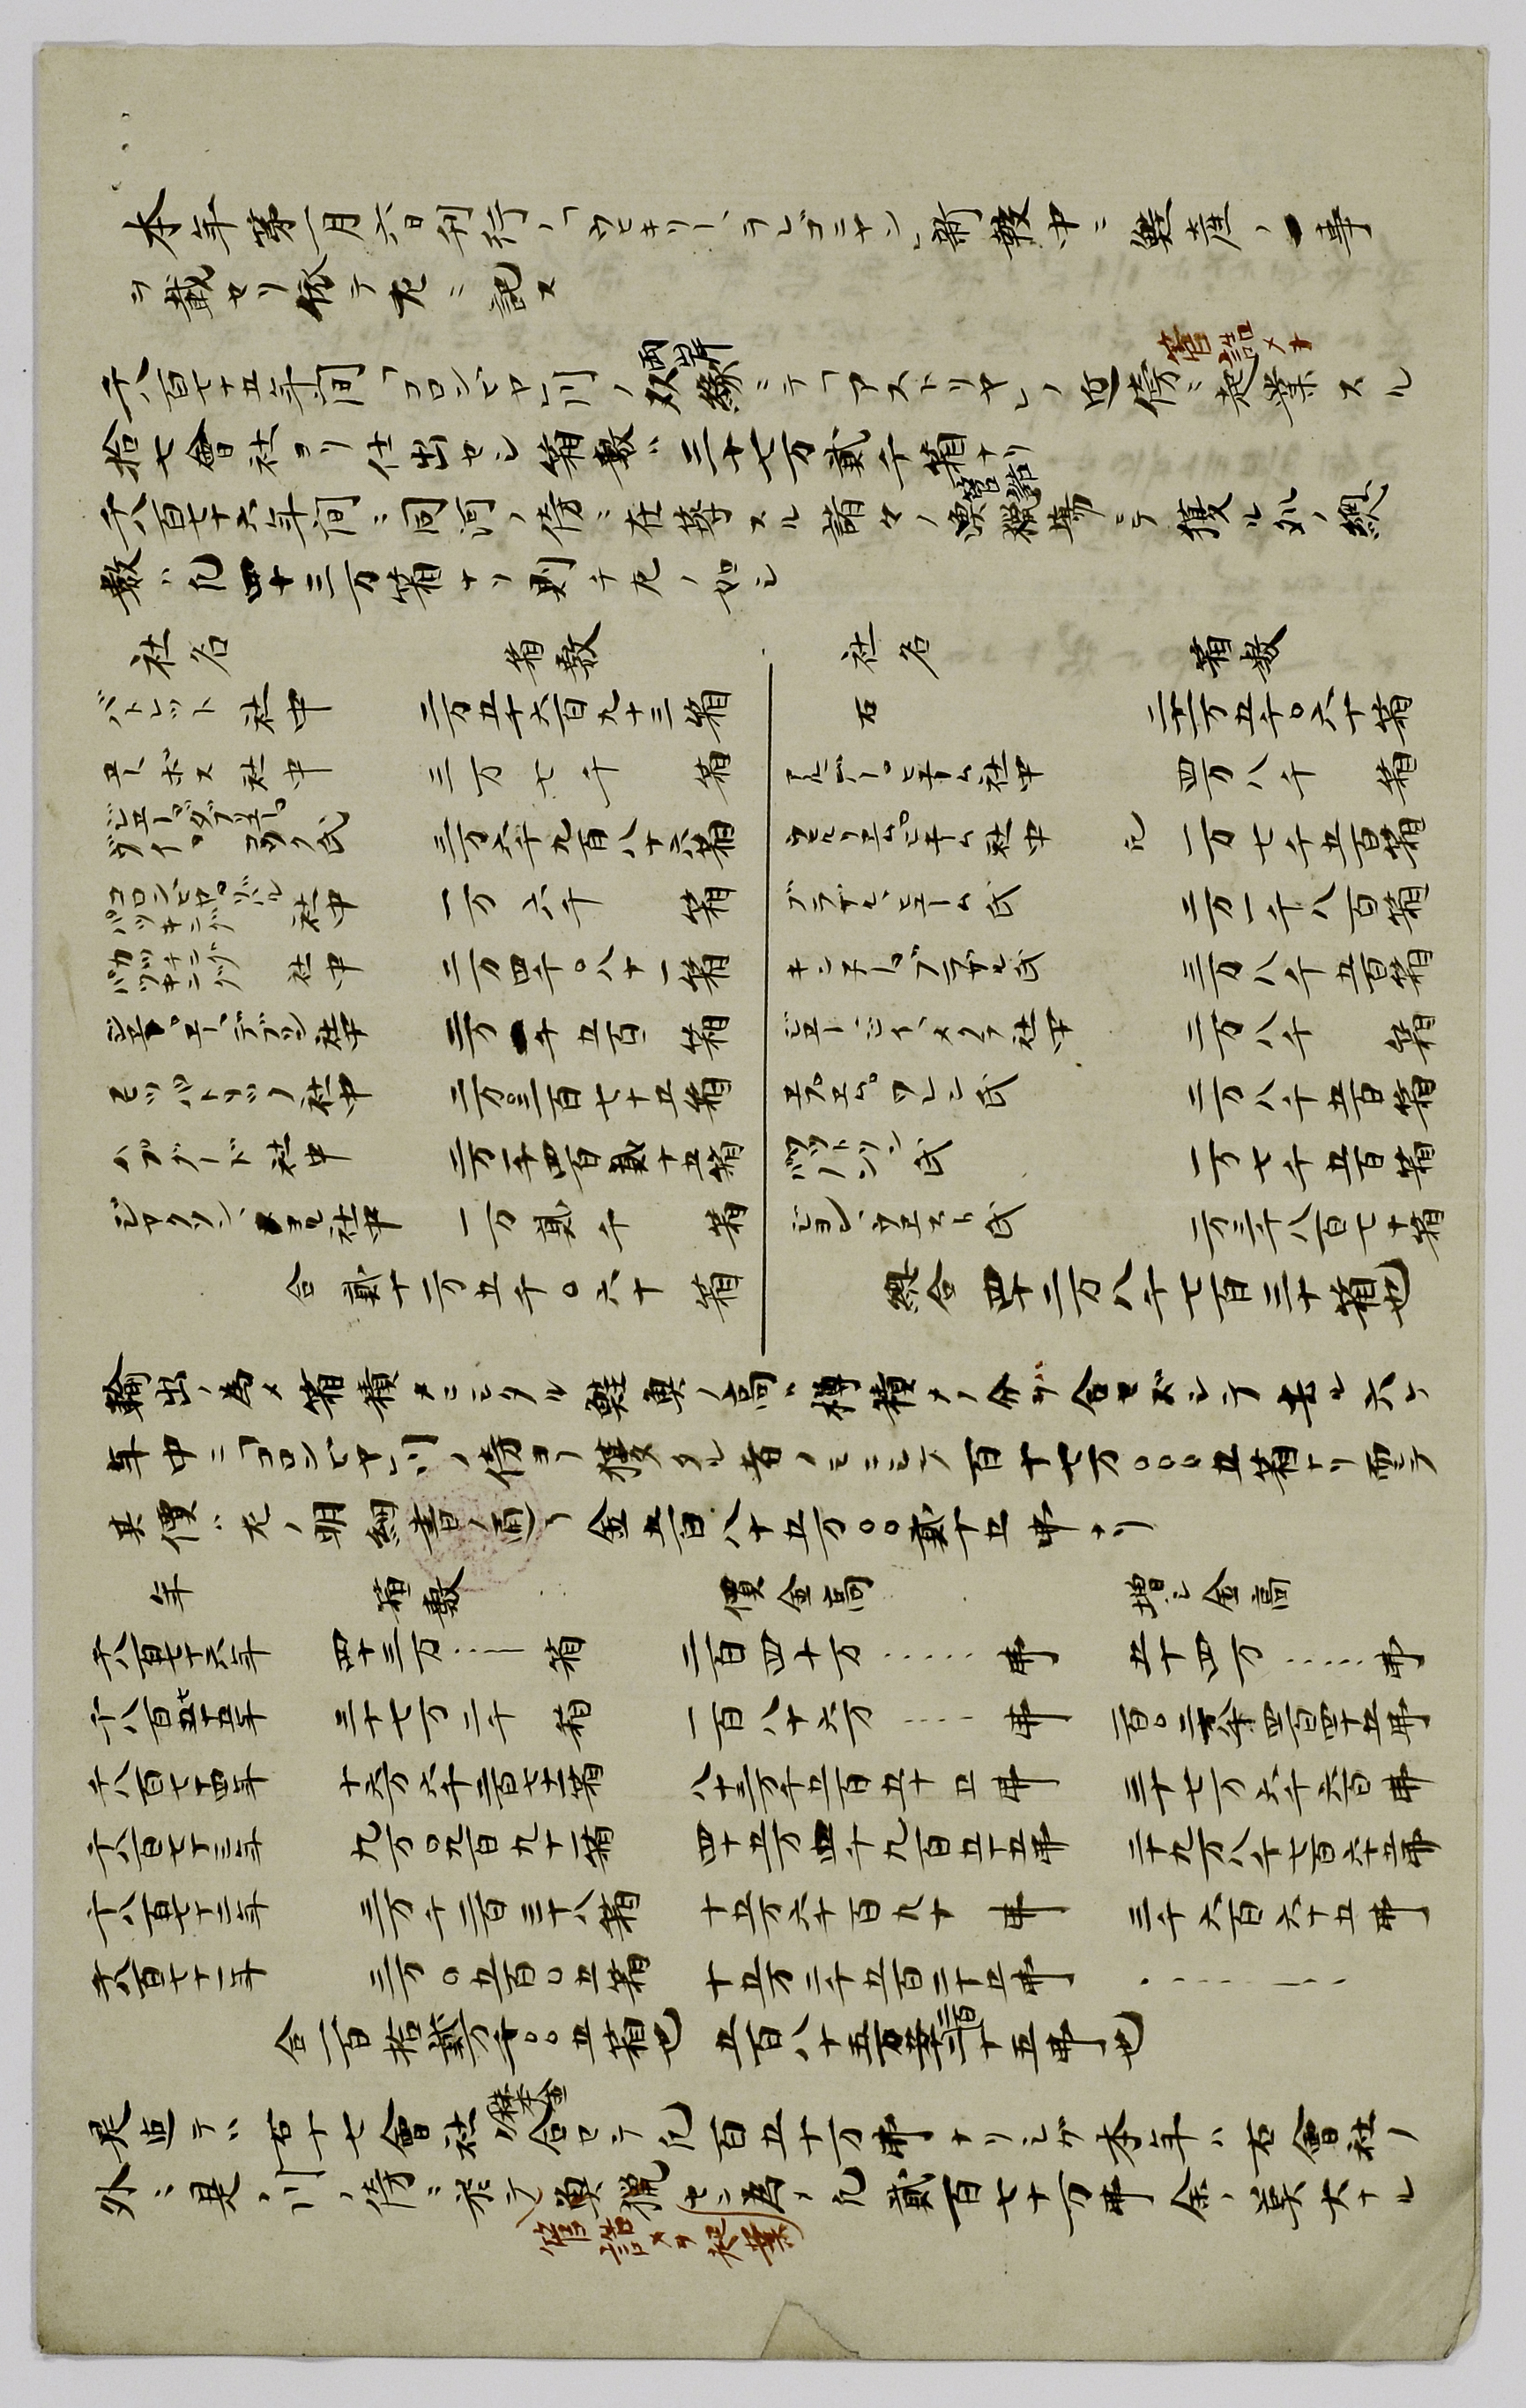 本年第一月六日刊行ノ「ウヒキリー、ヲレゴニヤン」新報中ニ鮭産ノ一事
ヲ載セリ依テ左ニ記ス
管詰メヲ
両岸
千八百七十五年間「コロンビヤ」川ノ双縁ニテ「アストリヤ」ノ近傍ニ起業スル
拾七會社ヨリ仕出セシ箱数ハ三十七万貳千箱ナリ
管詰
千八百七十六年間ニ同河ノ傍ニ在ル諸々ノ漁猟場ニテ獲ル処ノ総
数ハ凡四十三万箱ナリ則チ左ノ如シ
社名 箱数 社名 箱数
バトレット社中 二万五千六百九十三箱 右 二十二万五千〇六十箱
ユーボス社中 三万七千箱 社中 四万八千箱
氏 三万六千九百八十六箱 ウヰリエム、ヒユーム社中 凡一万七千五百箱
コロンビヤ、リバル パツキング社中 一万六千箱 ブラザル、ヒユーム氏 二万一千八百箱
カツチング パツキング社中 二万四千〇八十一箱 キンネー、ブラザル氏 三万八千五百箱
社中 二万一千五百箱 社中 二万八千箱
社中 二万〇三百七十五箱 氏 二万八千五百箱
ハブゴード社中 二万一千四百貳十五箱 ワットソン 氏 一万七千五百箱
ジヤクソン、社中 一万貳千箱 ジヨン、ウエスト氏 一万三千八百七十箱
合貳十二万五千〇六十箱 総合四十二万八千七百三十箱也
輸出ノ為メ箱積メニシタル鮭魚ノ高ハ樽積メノ分ヲ合セズシテ去ル六ヶ
年中ニ「コロンビヤ」川ノ傍ヨリ獲タル者ノミニシテ百十七万〇〇〇五箱ナリ而シテ
其價ハ左ノ明細書ノ通リ金五百八十五万〇〇貳十五弗ナリ
年 箱数 價金高 増シ金高
千八百七十六年 四十三万……箱 二百四十万……弗 五十四万……弗
千八百七十五年 三十七万二千箱 一百八十六万……弗 百〇二万八千四百四十五弗
千八百七十四年 十六万六千三百七十一箱 八十三万千五百五十五弗 三十七万六千六百弗
千八百七十三年 九万〇九百九十一箱 四十五万四千九百五十五弗 二十九万八千七百六十五弗
千八百七十二年 三万千二百三十八箱 十五万六千百九十弗 三千六百六十五弗
千八百七十一年 三万〇五百〇五箱 十五万二千五百二十五弗 ………
合一百拾貳万千〇〇五箱也 五百八十五万五千二百二十五弗也
株金
是迄テハ右十七會社ノ合セテ凡百五十万弗ナリシガ本年ハ右會社ノ
外ニ是ノ川ノ傍ニ於テ漁猟セン為メ凡貳百七十万弗金ノ莫大ナル
管詰メヲ起業